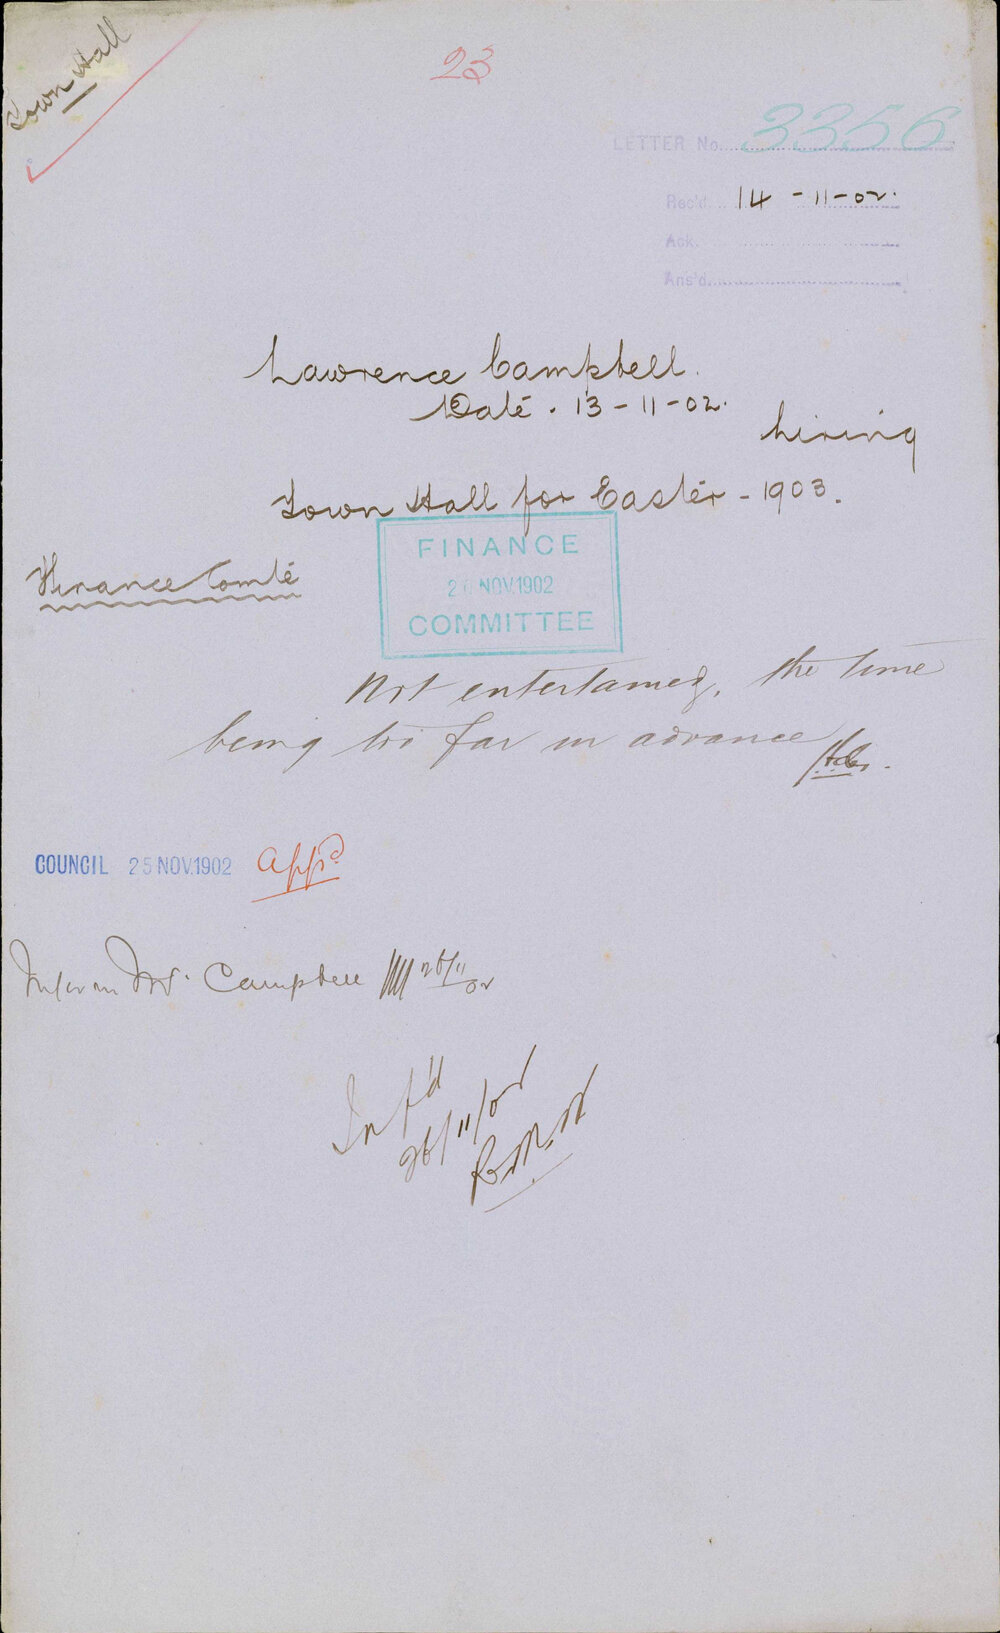 Town Hall
23
LETTER No. 3356
Rec'd. 14-11-02.
Ack.
Ans'd.
Lawrence Campbell.
Date. 13-11-02.
hiring
Town Hall for Easter - 1903.
Finance Comte
FINANCE
NOV.1902
COMMITTEE
Not entertained, the time
being too far in advance
COUNCIL 25 NOV.1902 Appd
Inform Mr. Campbell 26/11/02
Inf'd
26/11/02